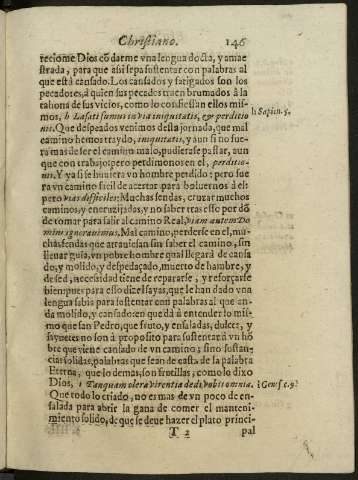 Christiano. 146
reciome Dios cõ darme vna lengua docta, y amae
strada, para que assi sepa sustentar con palabras al
que està cansado. Los cansados y fatigados son los
pecadores, à quien sus pecados traen brumados à la
tahona de sus vicios, como lo confiessan ellos mis-
mos, h Lassati sumus in via iniquitatis, & perditio
nis. Que despeados venimos desta jornada, que mal
camino hemos traydo, iniquitatis, y aun si no fue-
ra mas de ser el camino malo, pudierase passar, aun
que con trabajo: pero perdimonos en el, perditio-
nis. Y ya si se huuiera vn hombre perdido: pero fue
ra vn camino facil de acertar para boluernos à el:
pero vias difficiles: Muchas sendas, cruzar muchos
caminos, y encruzijadas, y no saber tras esso por dõ
de tomar para salir al camino Real, viam autem Do
mini ignorauimus. Mal camino, perderse en el, mu-
chas sendas que atrauiesan sin saber el camino, sin
lleuar guia, vn pobre hombre qual llegarà de cansa
do, y molido, y despedaçado, muerto de hambre, y
de sed, necessidad tiene de repararse, y reforçarse
bien: pues para esso dize Isayas, que le han dado vna
lengua sabia para sustentar con palabras al que an-
da molido, y cansado: en que dà à entender lo mis-
mo que san Pedro, que fruto, y ensaladas, dulces, y
saynetes no son à proposito para sustentar à vn hõ
bre que viene cansado de vn camino; sino sustan-
cias solidas, palabras que sean de casta de la palabra
Eterna, que lo demas, son frutillas; como le dixo
Dios, i Tanquam olera virentia dedi vobis omnia.
Que todo lo criado, no es mas de vn poco de en-
salada para abrir la gana de comer el manteni-
miento solido, de que se deue hazer el plato princi-
T 2 pal
h Sapien. 5.
i Gen. c. 9.